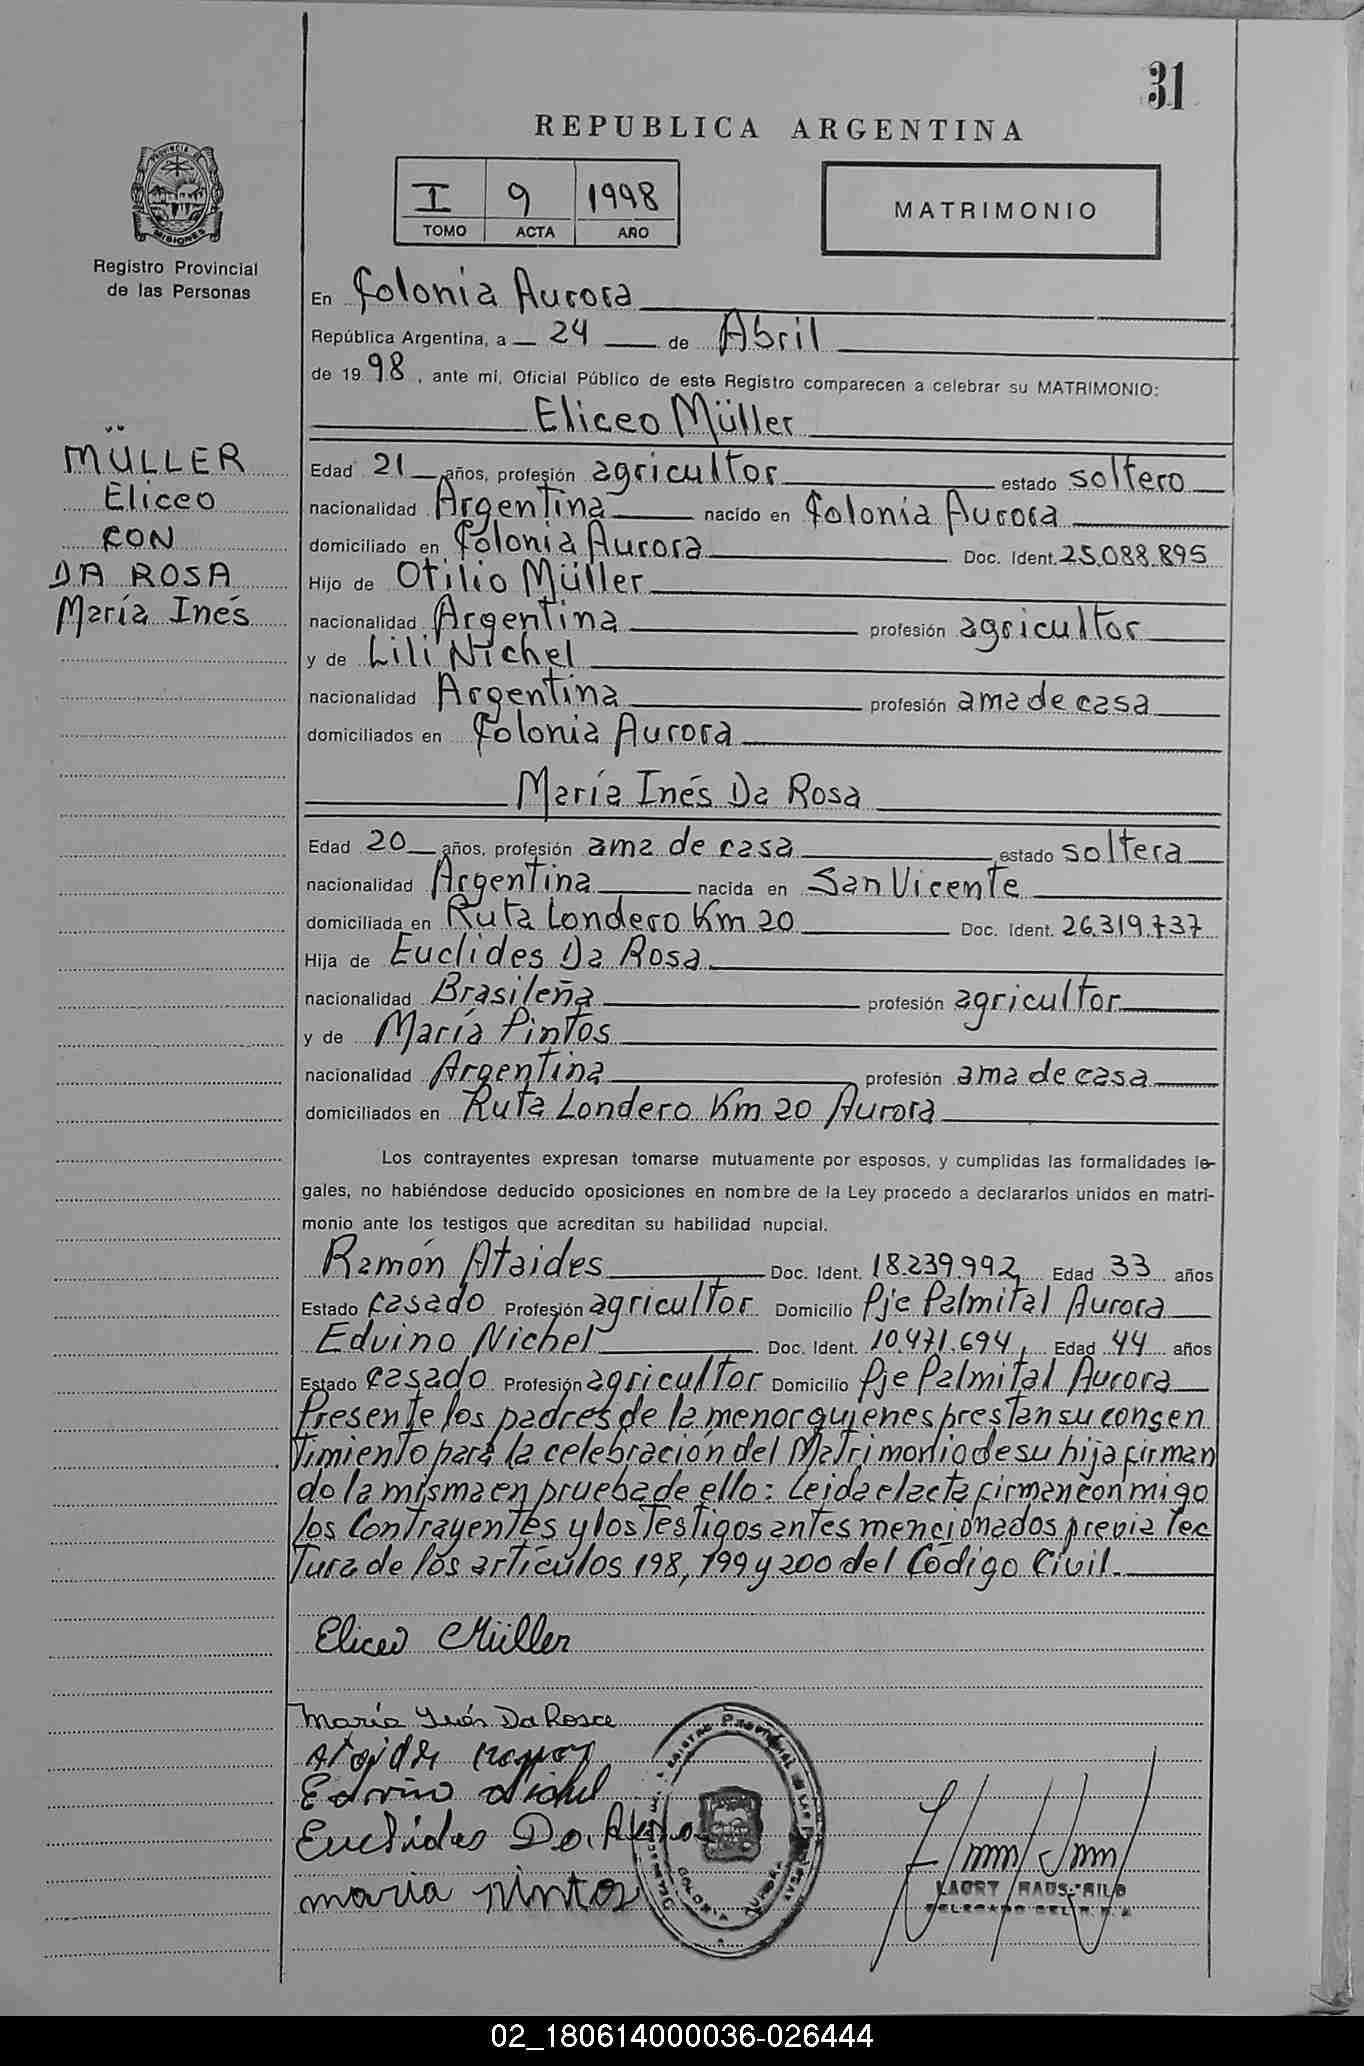 31
REPUBLICA ARGENTINA
PROVINCIA DE
MISIONES
Registro Provincial
de las Personas
I 9 1998
TOMO ACTA AÑO
MATRIMONIO
En Colonia Aurora
República Argentina, a 24 de Abril
de 1998, ante mí, Oficial Público de este Registro comparecen a celebrar su MATRIMONIO:
Eliceo Müller
MÜLLER
Eliceo
CON
DA ROSA
María Inés
Edad 21 años, profesión agricultor estado soltero
nacionalidad Argentina nacido en Colonia Aurora
domiciliado en Colonia Aurora Doc. Ident. 25.088.895
Hijo de Otilio Müller
nacionalidad Argentina profesión agricultor
y de Lili Nichel
nacionalidad Argentina profesión ama de casa
domiciliados en Colonia Aurora
María Inés Da Rosa
Edad 20 años, profesión ama de casa estado soltera
nacionalidad Argentina nacida en San Vicente
domiciliada en Ruta Londero Km 20 Doc. Ident. 26.319.737
Hija de Euclides Da Rosa
nacionalidad Brasileña profesión agricultor
y de María Pintos
nacionalidad Argentina profesión ama de casa
domiciliados en Ruta Londero Km 20 Aurora
Los contrayentes expresan tomarse mutuamente por esposos, y cumplidas las formalidades le-
gales, no habiéndose deducido oposiciones en nombre de la Ley procedo a declararlos unidos en matri-
monio ante los testigos que acreditan su habilidad nupcial.
Ramón Ataides Doc. Ident. 18.239.992 Edad 33 años
Estado casado Profesión agricultor Domicilio Pje Palmital Aurora
Eduino Nichel Doc. Ident. 10.471.694, Edad 44 años
Estado casado Profesión agricultor Domicilio Pje Palmital Aurora
Presente los padres de la menor quienes prestan su consen
timiento para la celebración del Matrimonio de su hija firman
do la misma en prueba de ello: Leida el acta firman conmigo
los Contrayentes y los Testigos antes mencionados previa lec
tura de los artículos 198, 199 y 200 del Código Civil.
Eliceo Müller
María Inés Da Rosa
Ataides Ramon
Edvino Nichel
Euclides Da Rosa
maria pintos
REGISTRO PROVINCIAL DE LAS PERSONAS
COLONIA AURORA
DELEGADO DEL R. P. P.
02_180614000036-026444